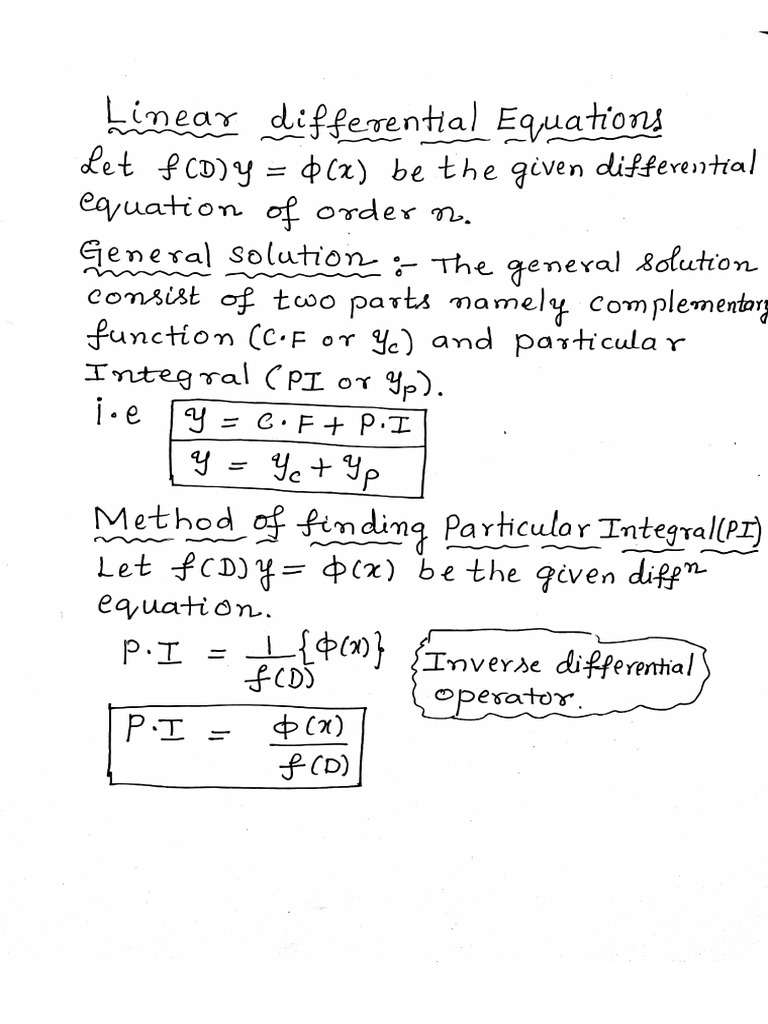 Linear differential Equations
Let f(D)y = ϕ(x) be the given differential
equation of order n.
General solution :- The general solution
consist of two parts namely complementary
function (C.F or y_c) and particular
Integral (PI or y_p).
i.e y = C.F + P.I
y = y_c + y_p
Method of finding Particular Integral(PI)
Let f(D)y = ϕ(x) be the given diff^n
equation.
P.I = 1/f(D) {ϕ(x)}
Inverse differential
operator.
P.I = ϕ(x)/f(D)